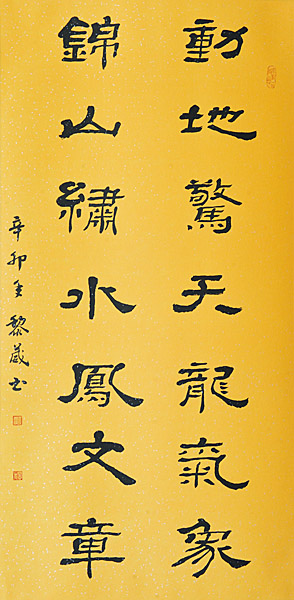 動地驚天龍氣象
錦山繡水鳳文章
辛卯冬黎葳书